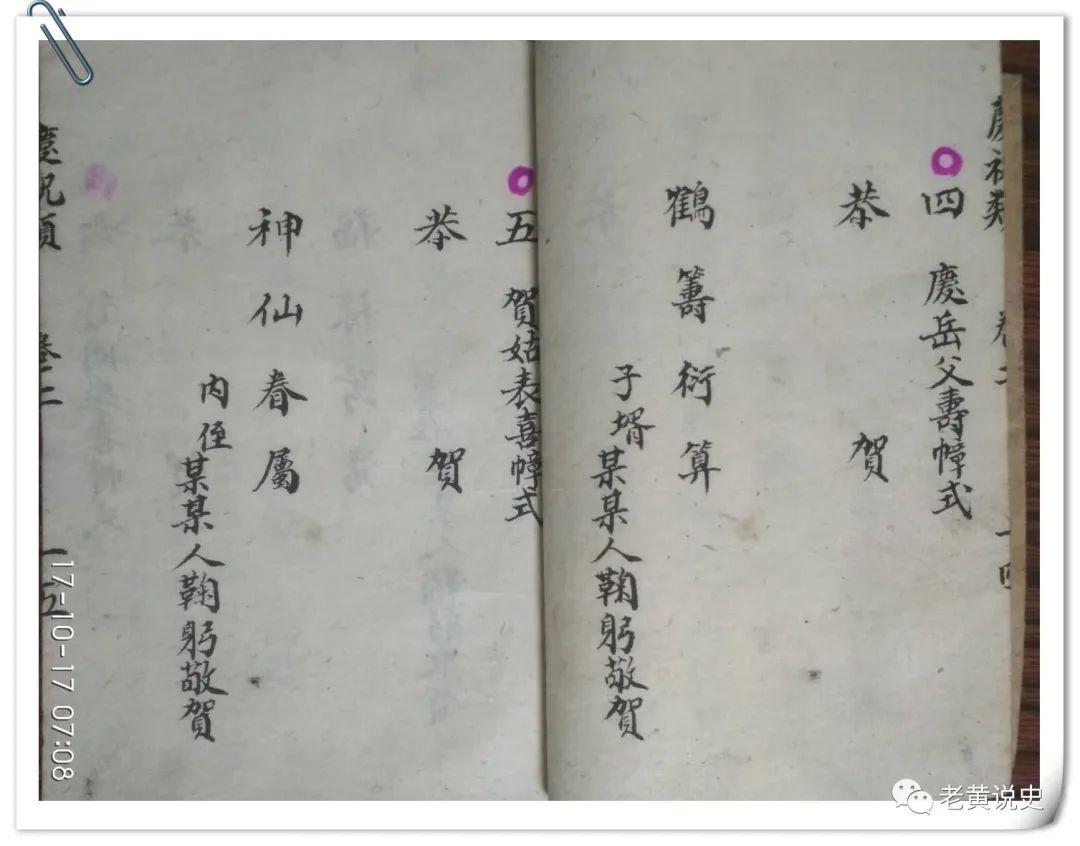 慶祝類 卷二 一四
四 慶岳父壽幛式
恭賀
鶴籌衍算
子壻某某人鞠躬敬賀
五 賀姑表喜幛式
恭賀
神仙眷屬
内侄某某人鞠躬敬賀
慶祝類 卷二 一五
17-10-17 07:08
老黄说史